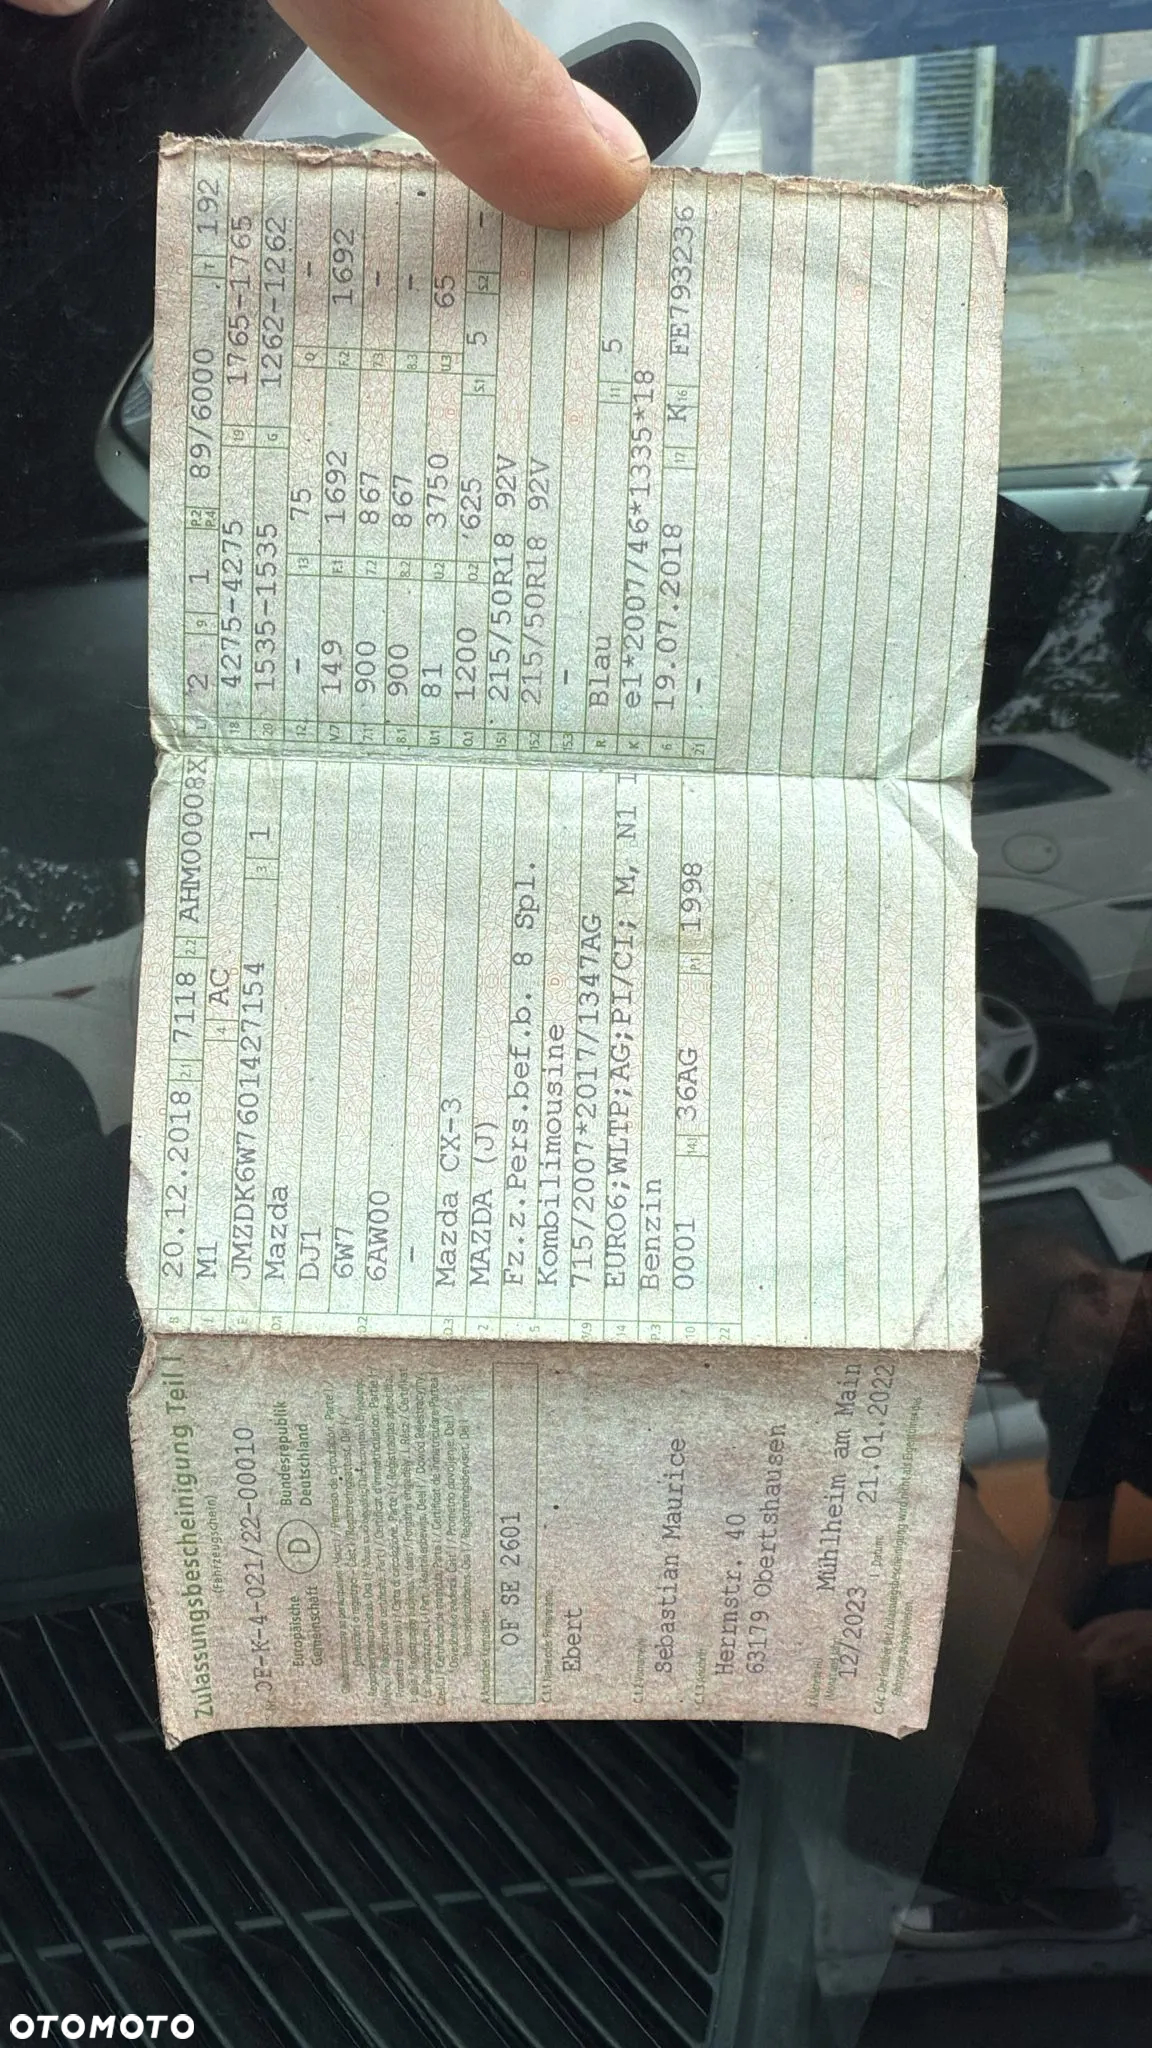 Zulassungsbescheinigung Teil I
(Fahrzeugschein)
OF-K-4-021/22-00010
Europäische Gemeinschaft
D
Bundesrepublik Deutschland
OF SE 2601
Ebert
Sebastian Maurice
Herrnstr. 40
63179 Obertshausen
Mühlheim am Main
12/2023 21.01.2022
B 20.12.2018 2.1 7118 2.2 AHM00008X
J M1 4 AC
E JMZDK6W7601427154 3 1
D.1 Mazda
DJ1
D.2 6W7
6AW00
-
D.3 Mazda CX-3
2 MAZDA (J)
5 Fz.z.Pers.bef.b. 8 Spl.
Kombilimousine
V.9 715/2007*2017/1347AG
14 EURO6;WLTP;AG;PI/CI; M, N1 I
P.3 Benzin
10 0001 14.1 36AG P.1 1998
22
L 2 9 1 P.2 P.4 89/6000 T 192
18 4275-4275 19 1765-1765
20 1535-1535 G 1262-1262
12 - 13 75 Q -
V.7 149 F.1 1692 F.2 1692
7.1 900 7.2 867 7.3 -
8.1 900 8.2 867 8.3 -
U.1 81 U.2 3750 U.3 65
O.1 1200 O.2 625 S.1 5 S.2 -
15.1 215/50R18 92V
15.2 215/50R18 92V
15.3 -
R Blau 11 5
K e1*2007/46*1335*18
6 19.07.2018 17 K 16 FE793236
21 -
OTOMOTO